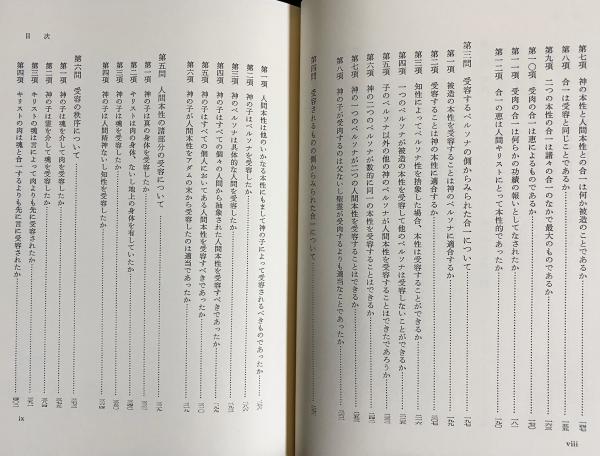 第七項 神の本性と人間本性との合一は何か被造のことであるか
第八項 合一は受容と同じことであるか
第九項 二つの本性の合一は諸々の合一のなかで最大のものであるか
第一〇項 受肉の合一は恩恵によるものであるか
第一一項 受肉の合一は何らかの功績の報いとしてなされたか
第一二項 合一の恩恵は人間キリストにとって本性的であったか
第三問 受容するペルソナの側からみられた合一について
第一項 被造の本性を受容することは神のペルソナに適合するか
第二項 受容することは神の本性に適合するか
第三項 知性によってペルソナ性を捨象した場合、本性は受容することができるか
第四項 一つのペルソナが被造の本性を受容して他のペルソナは受容しないことができるか
第五項 子のペルソナ以外の他の神のペルソナが人間本性を受容することはできたであろうか
第六項 神の二つのペルソナが数的に同一の本性を受容することはできるか
第七項 神の一つのペルソナが二つの人間本性を受容することはできるか
第八項 神の子が受肉するのは父ないし聖霊が受肉するよりも適当なことであったか
第四問 受容されるものの側からみられた合一について
viii
目 次
第一項 人間本性は他のいかなる本性にもまして神の子によって受容されるべきものであったか
第二項 神の子はペルソナを受容したか
第三項 神のペルソナは具体的な人間を受容したか
第四項 神の子はすべての個々の人間から抽象された人間本性を受容すべきであったか
第五項 神の子はすべての個人においてある人間本性を受容すべきであったか
第六項 神の子が人間本性をアダムの末から受容したのは適当であったか
第五問 人間本性の諸部分の受容について
第一項 神の子は真の身体を受容したか
第二項 キリストは肉の身体、ないし地上の身体を有していたか
第三項 神の子は魂を受容したか
第四項 神の子は人間精神ないし知性を受容したか
第六問 受容の秩序について
第一項 神の子は魂を介して肉を受容したか
第二項 神の子は霊を介して魂を受容したか
第三項 キリストの魂は言によって肉よりも先に受容されたか
第四項 キリストの肉は魂と合一するよりも先に言に受容されたか
ix